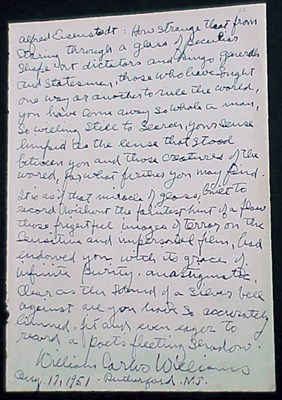 Alfred Eisenstadt: How strange that from
staring through a glass of peculiar
shape at dictators and kings, generals
and statesmen, those who have sought
one way or another to rule the world,
you have come away so whole a man,
so willing still to search, your sense
limpid as the lense that stood
between you and those creatures of the
world, for what further you may find.
It is as if that miracle of glass, built to
record without the faintest hint of a flaw
those frightful images of terror on the
sensitive and impersonal film, had
endowed you with its grace of
infinite purity, anastigmatic,
clear as the sound of a silver bell
against all you have so accurately
limned, fit and even eager to
record a poet's fleeting shadow.
William Carlos Williams
Aug. 17, 1951 - Rutherford, N.J.